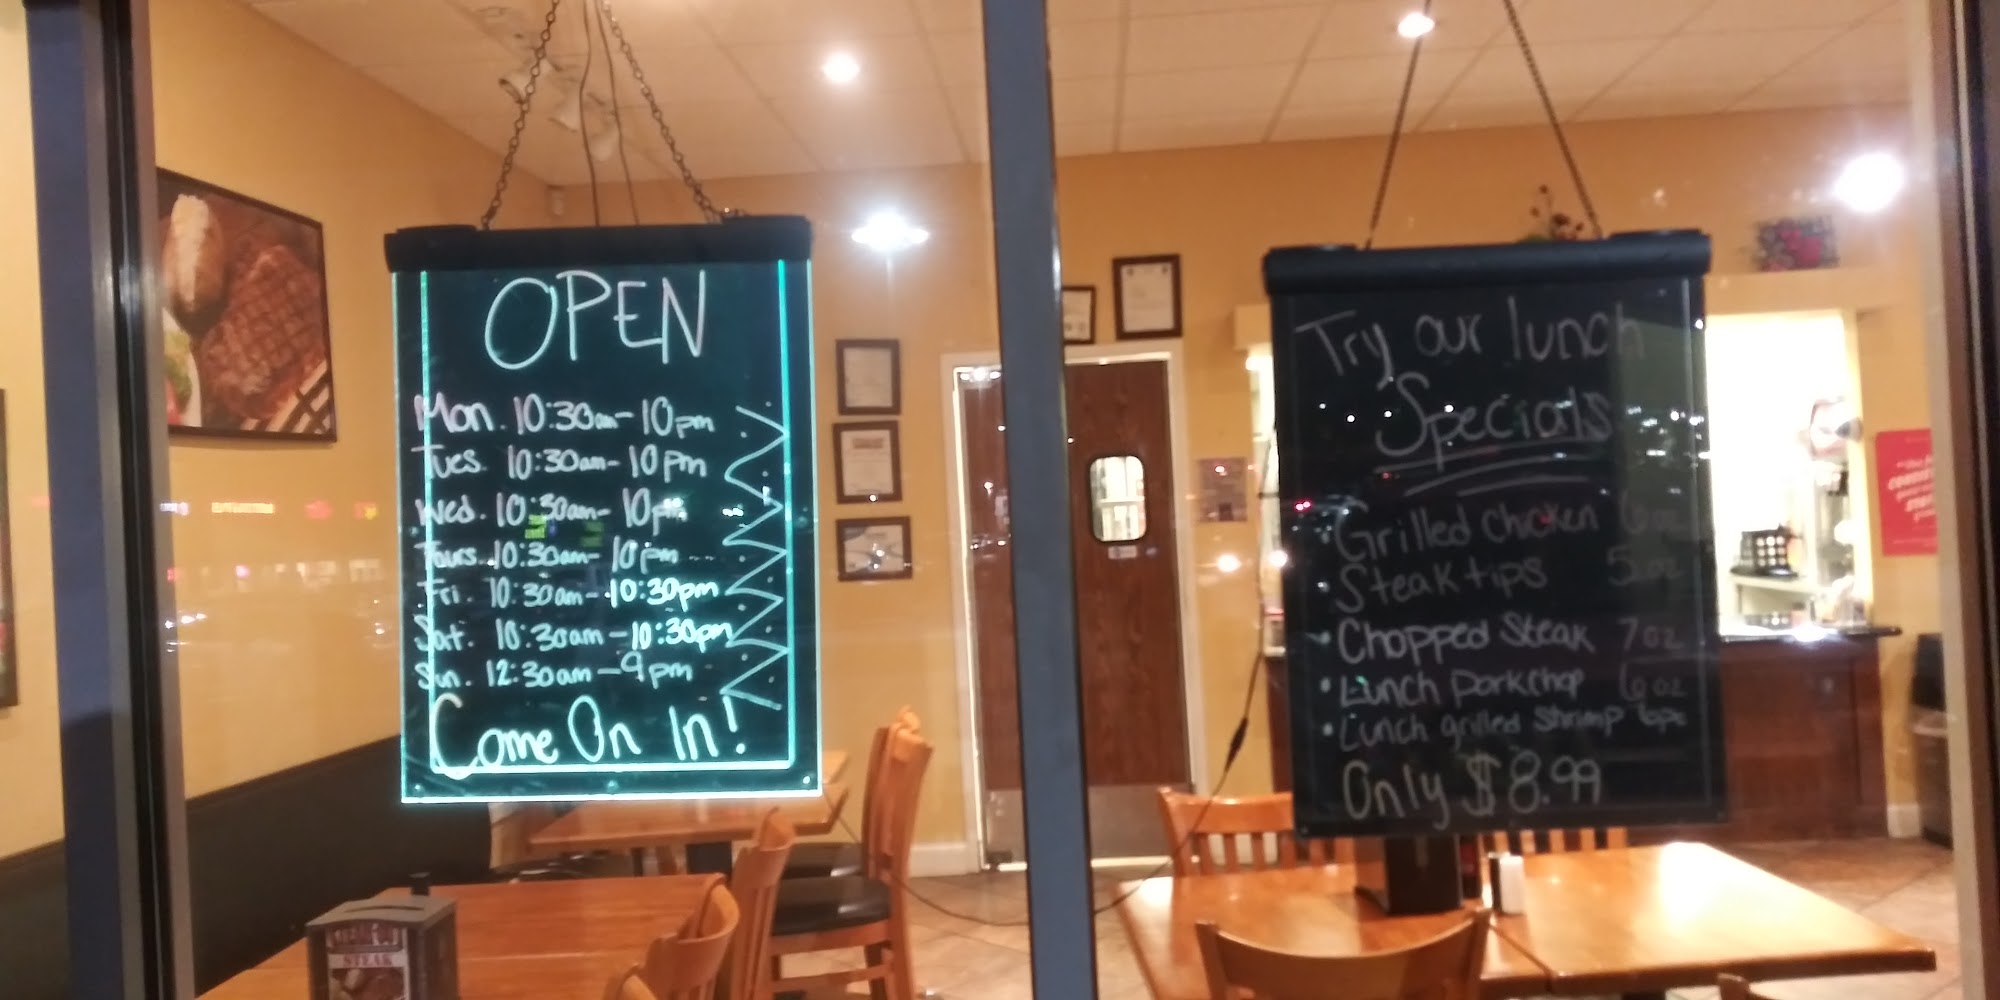 OPEN
Mon. 10:30am-10pm
Tues. 10:30am-10pm
Wed. 10:30am-10pm
Tours. 10:30am-10pm
Fri. 10:30am-10:30pm
Sat. 10:30am-10:30pm
Sun. 12:30am-9pm
Come On In!
STEAK
Try our lunch
Specials
• Grilled chicken 6oz
• Steak tips 5oz
• Chopped Steak 7oz
• Lunch porkchop 6oz
• Lunch grilled Shrimp 6pc
Only $8.99